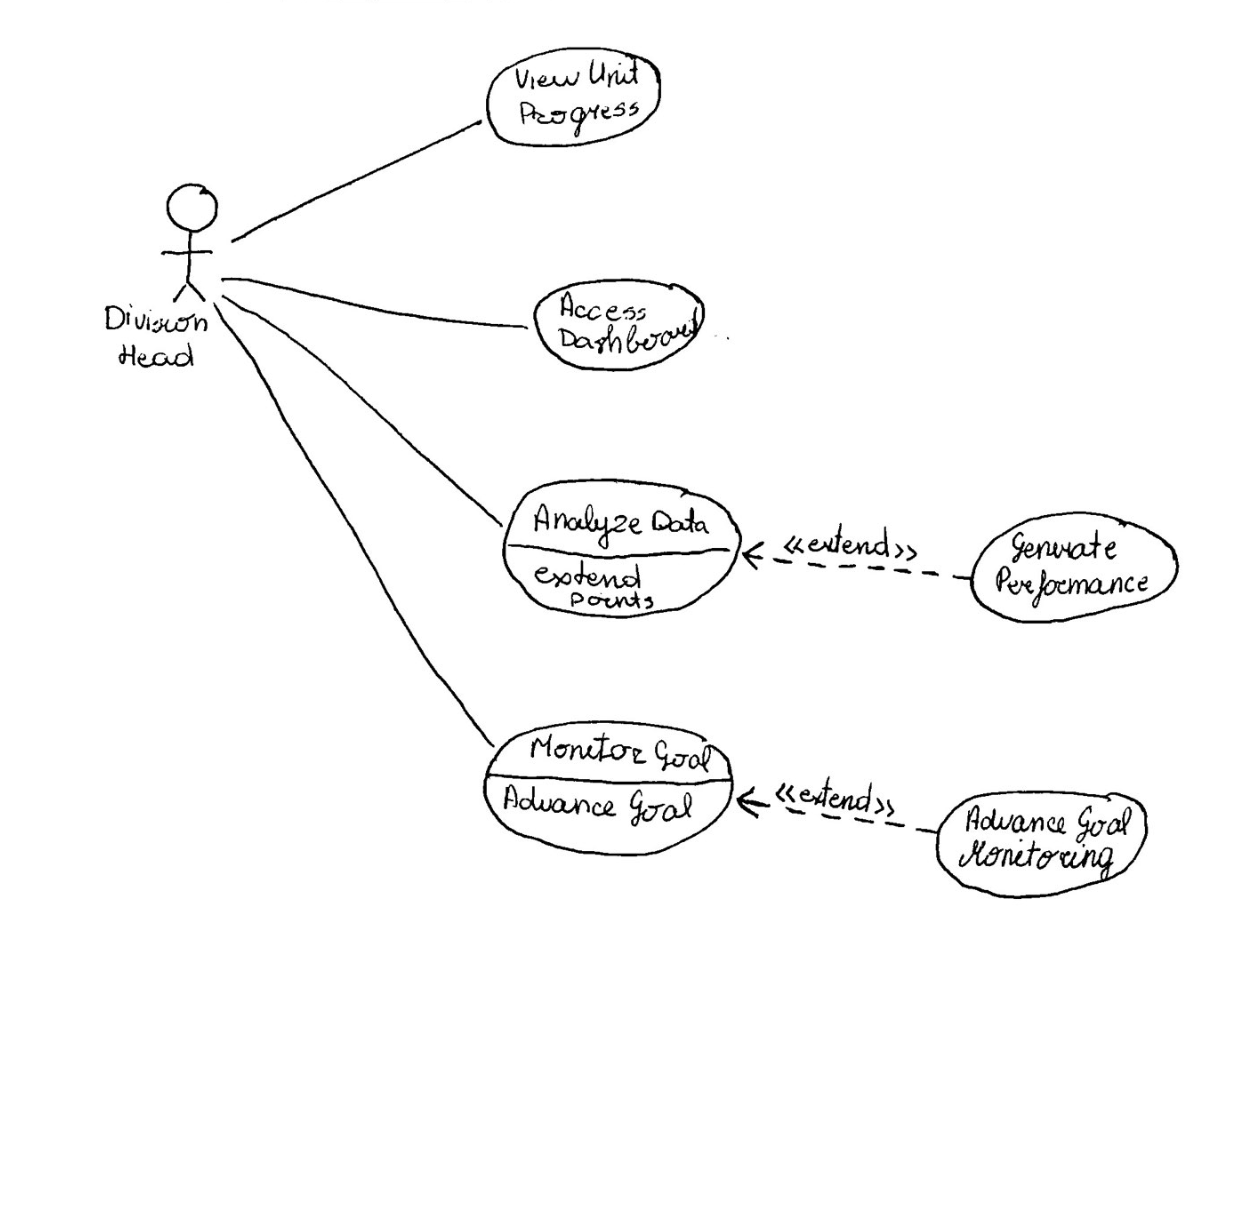 View Unit
Progress
Division
Head
Access
Dashboard
Analyze Data
extend
points
<<extend>>
Generate
Performance
Monitor Goal
Advance Goal
<<extend>>
Advance Goal
Monitoring